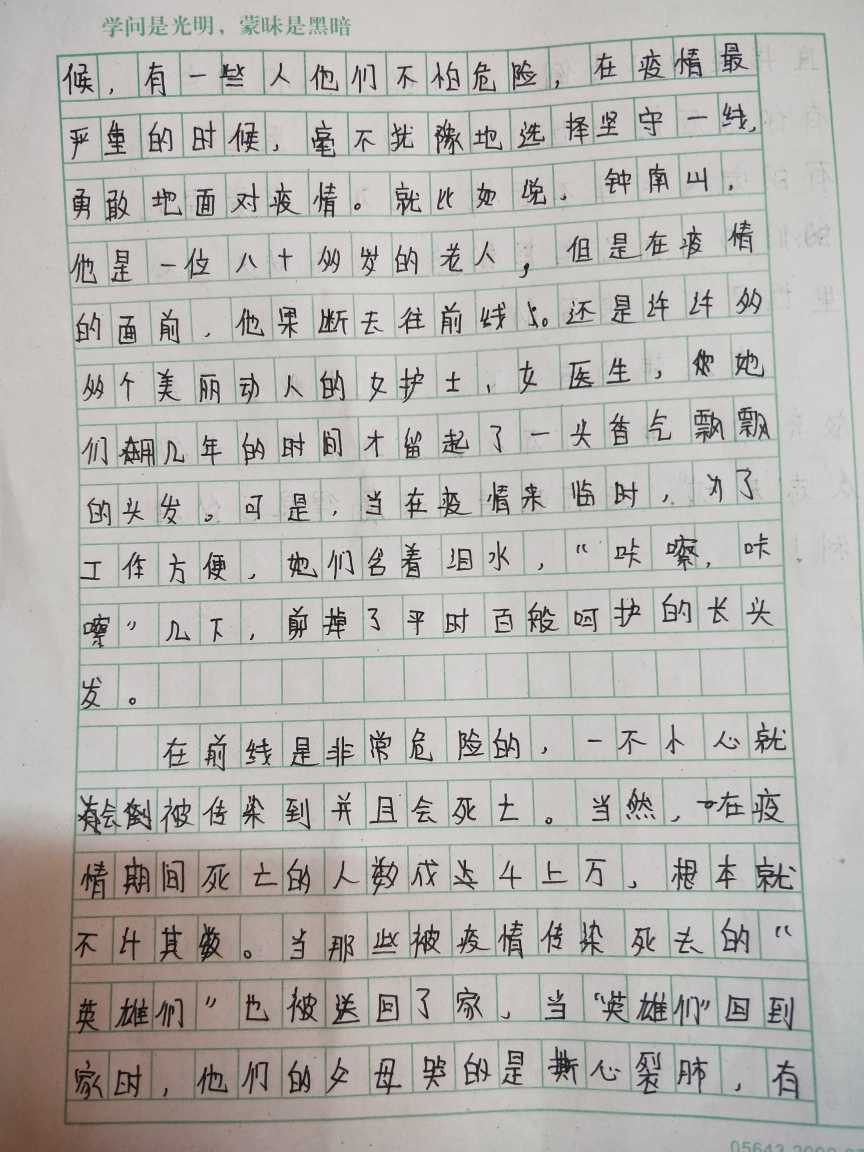 学问是光明，蒙昧是黑暗
候，有一些人他们不怕危险，在疫情最
严重的时候，毫不犹豫地选择坚守一线，
勇敢地面对疫情。就比如说，钟南山，
他是一位八十多岁的老人，但是在疫情
的面前，他果断去往前线。还是许许多
多个美丽动人的女护士、女医生，她
们用几年的时间才留起了一头香气飘飘
的头发。可是，当在疫情来临时，为了
工作方便，她们含着泪水，“咔嚓，咔
嚓”几下，剪掉了平时百般呵护的长头
发。
在前线是非常危险的，一不小心就
会被传染到并且会死亡。当然，在疫
情期间死亡的人数成达千上万，根本就
不计其数。当那些被疫情传染死去的“
英雄们”也被送回了家，当“英雄们”回到
家时，他们的父母哭的是撕心裂肺，有